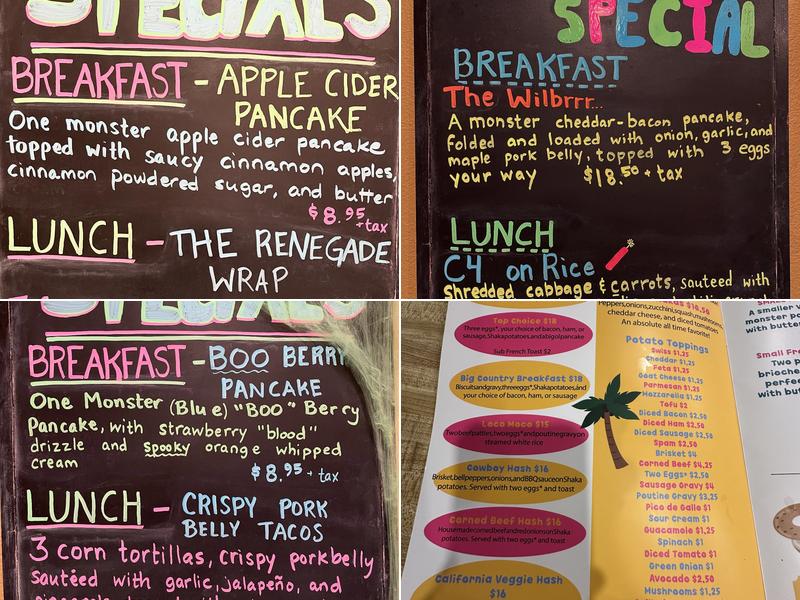 SPECIALS
BREAKFAST - APPLE CIDER
PANCAKE
One monster apple cider pancake
topped with saucy cinnamon apples,
cinnamon powdered sugar, and butter
$8.95 + tax
LUNCH - THE RENEGADE
WRAP
SPECIAL
BREAKFAST
The Wilbrrr...
A monster cheddar-bacon pancake,
folded and loaded with onion, garlic, and
maple pork belly, topped with 3 eggs
your way $18.50 + tax
LUNCH
C4 on Rice
Shredded cabbage & carrots, sauteed with
SPECIALS
BREAKFAST - BOO BERRY
PANCAKE
One Monster (Blue) "BOO" Berry
Pancake, with strawberry "blood"
drizzle and spooky orange whipped
cream
$8.95 + tax
LUNCH - CRISPY PORK
BELLY TACOS
3 corn tortillas, crispy porkbelly
sautéed with garlic, jalapeño, and
Top Choice $18
Three eggs*, your choice of bacon, ham, or
sausage, Shaka potatoes, and a big ol pancake
Sub French Toast $2
Big Country Breakfast $18
Biscuits and gravy, three eggs*, Shaka potatoes, and
your choice of bacon, ham, or sausage
Loco Moco $15
Two beef patties, two eggs* and poutine gravy on
steamed white rice
Cowboy Hash $16
Brisket, bell peppers, onions, and BBQ sauce on Shaka
potatoes. Served with two eggs* and toast
Corned Beef Hash $16
Housemade corned beef and red onions on Shaka
potatoes. Served with two eggs* and toast
California Veggie Hash
$16
$16.50
Peppers, onions, zucchini, squash, mushrooms,
cheddar cheese, and diced tomatoes
An absolute all time favorite!
Potato Toppings
Swiss $1.25
Cheddar $1.25
Feta $1.25
Goat Cheese $1.25
Parmesan $1.25
Mozzarella $1.25
Tofu $2
Diced Bacon $2.50
Diced Ham $2.50
Diced Sausage $2.50
Spam $2.50
Brisket $4
Corned Beef $4.25
Two Eggs* $2.50
Sausage Gravy $4
Poutine Gravy $3.25
Pico de Gallo $1
Sour Cream $1
Guacamole $1.25
Spinach $1
Diced Tomato $1
Green Onion $1
Avocado $2.50
Mushrooms $1.25
A smaller
monster
with butte
Small Fre
Two
brioche
perfe
with but